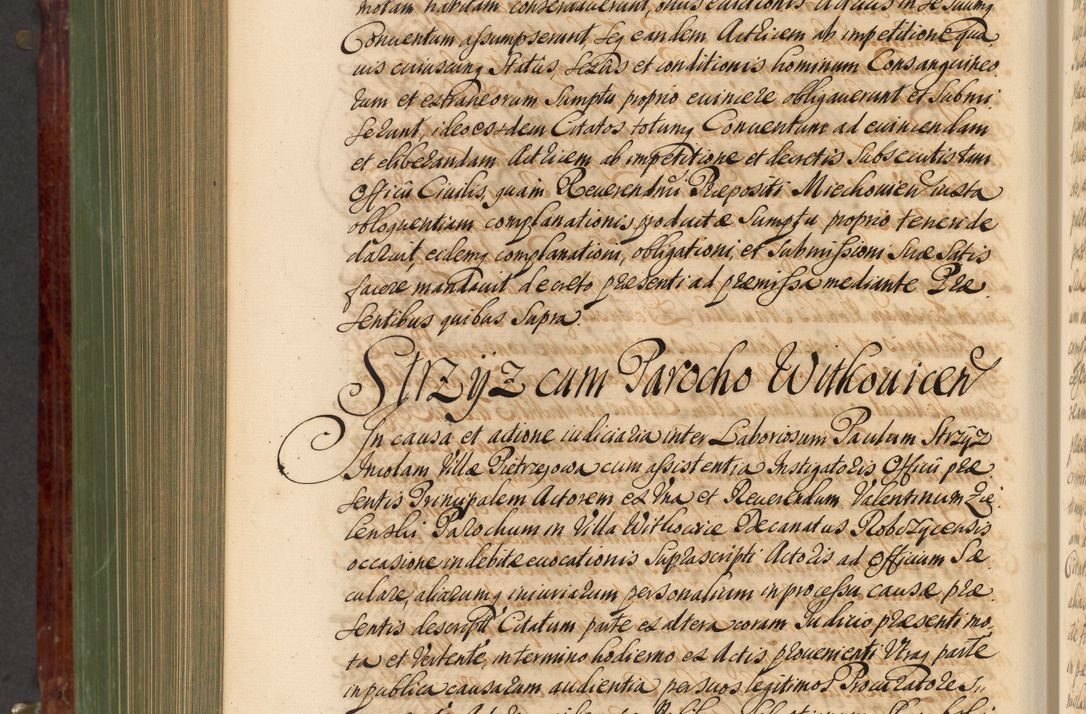 motam habitam conseraverunt, onus evictionis Actûs in se suumq
Conventum assumpserunt, seq eandem Actricem ab impetitione qua
vis cuiuscunq Statûs, sexûs et conditionis hominum Consanguineo
rum et extraneorum Sumptu proprio evincere obligaverunt et Submi
serunt, ideo eosdem Citatos totumq Conventum ad evincendam
et eliberandam Actricem ab impetitione et decretis Subsecutis tam
Officii Civilis, quam Reverendmi Præpositi Miechovien iuxta
obloquentiam complanationis productæ Sumptu proprio teneri de
claravit, eidemq complanationi, obligationi, et Submissioni suæ Satis
facere mandavit decreto præsenti ad præmissa mediante Præ
sentibus quibus supra.
Strzÿz cum Parocho Witkovicen
In causa et actione iudiciaria inter Laboriosum Paulum Strzÿz
Incolam Villæ Pietrzejowa cum assistentia Instigatoris Officii præ
sentis Principalem Actorem ex Una et Reverendum Valentinum Zie
lenski Parochum in Villa Witkowice Decanatus Robczycensis
occasione indebitæ evocationis Suprascripti Actoris ad Officium Sæ
culare, aliarumq iniuriarum personalium in processu causæ, præ
sentis descript Citatum parte ex altera coram Iudicio præsenti mo
ta et Vertente, in termino hodierno ex Actis provenienti Utraq parte
in publica causarum audientia per suos legitimos Procuratores